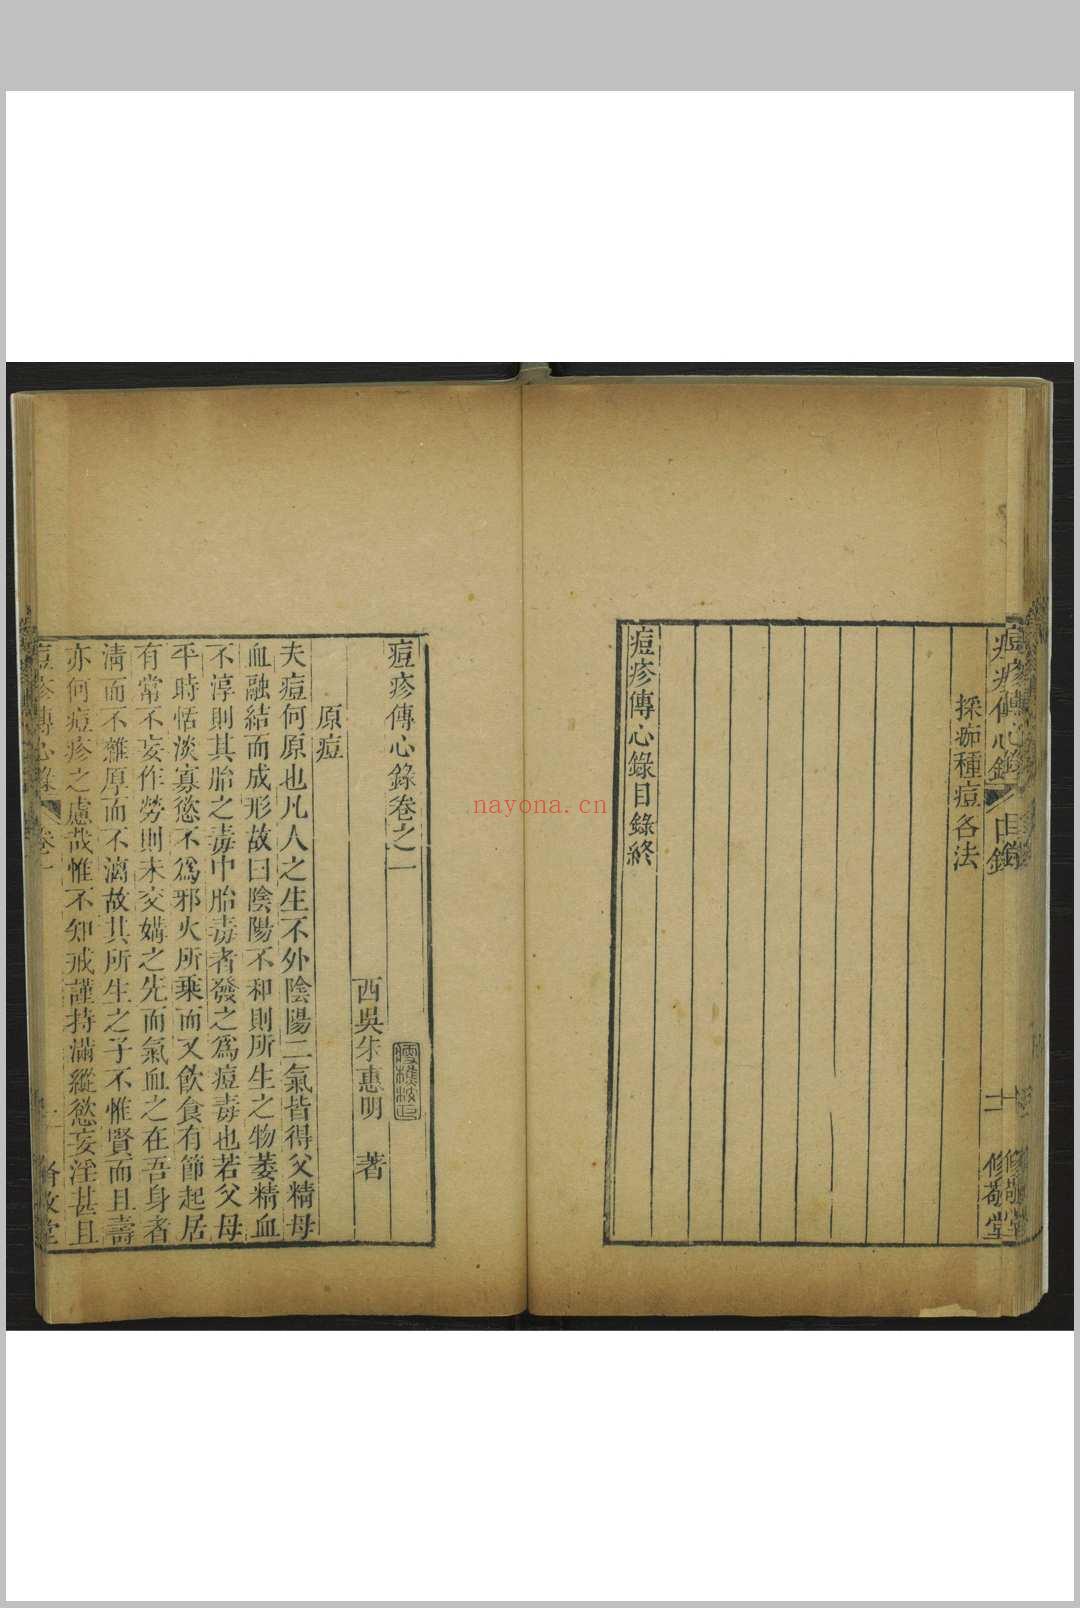 痘疹傳心錄
目錄
十一
修敬堂
採痂種痘各法
痘疹傳心錄目錄終
痘疹傳心錄卷之一
西吳朱惠明 著
原痘
夫痘何原也凡人之生不外陰陽二氣皆得父精母
血融結而成形故曰陰陽不和則所生之物萎精血
不淳則其胎之毒中胎毒者發之爲痘毒也若父母
平時恬淡寡慾不爲邪火所乗而又飮食有節起居
有常不妄作勞則未交媾之先而氣血之在吾身者
淸而不雜厚而不漓故其所生之子不惟賢而且壽
亦何痘疹之慮哉惟不知戒謹持滿縱慾妄淫甚且
痘疹傳心錄
卷一
一
修敬堂
nayona.cn